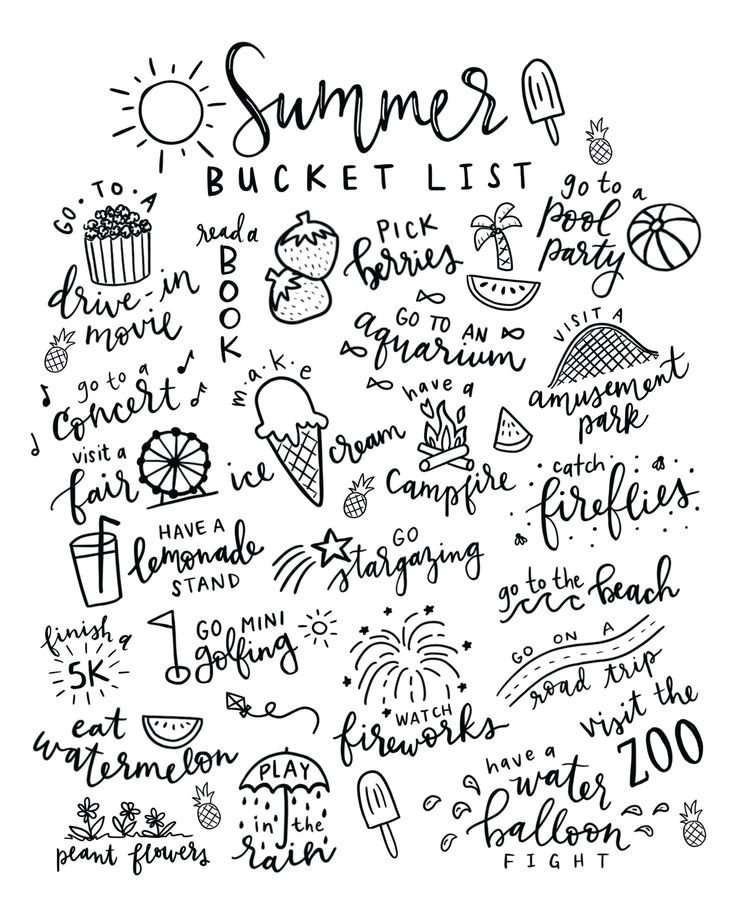 Summer
BUCKET LIST
GO TO A
drive-in
movie
read a
BOOK
PICK
berries
go to a
pool
party
GO TO AN
aquarium
VISIT A
amusement
park
go to a
concert
make
ice cream
have a
campfire
visit a
fair
catch
fireflies
HAVE A
lemonade
STAND
GO
stargazing
go to the beach
finish a
5K
GO MINI
golfing
WATCH
fireworks
GO ON A
road trip
visit the
ZOO
eat
watermelon
PLAY
in the
rain
have a
water
balloon
FIGHT
plant flowers